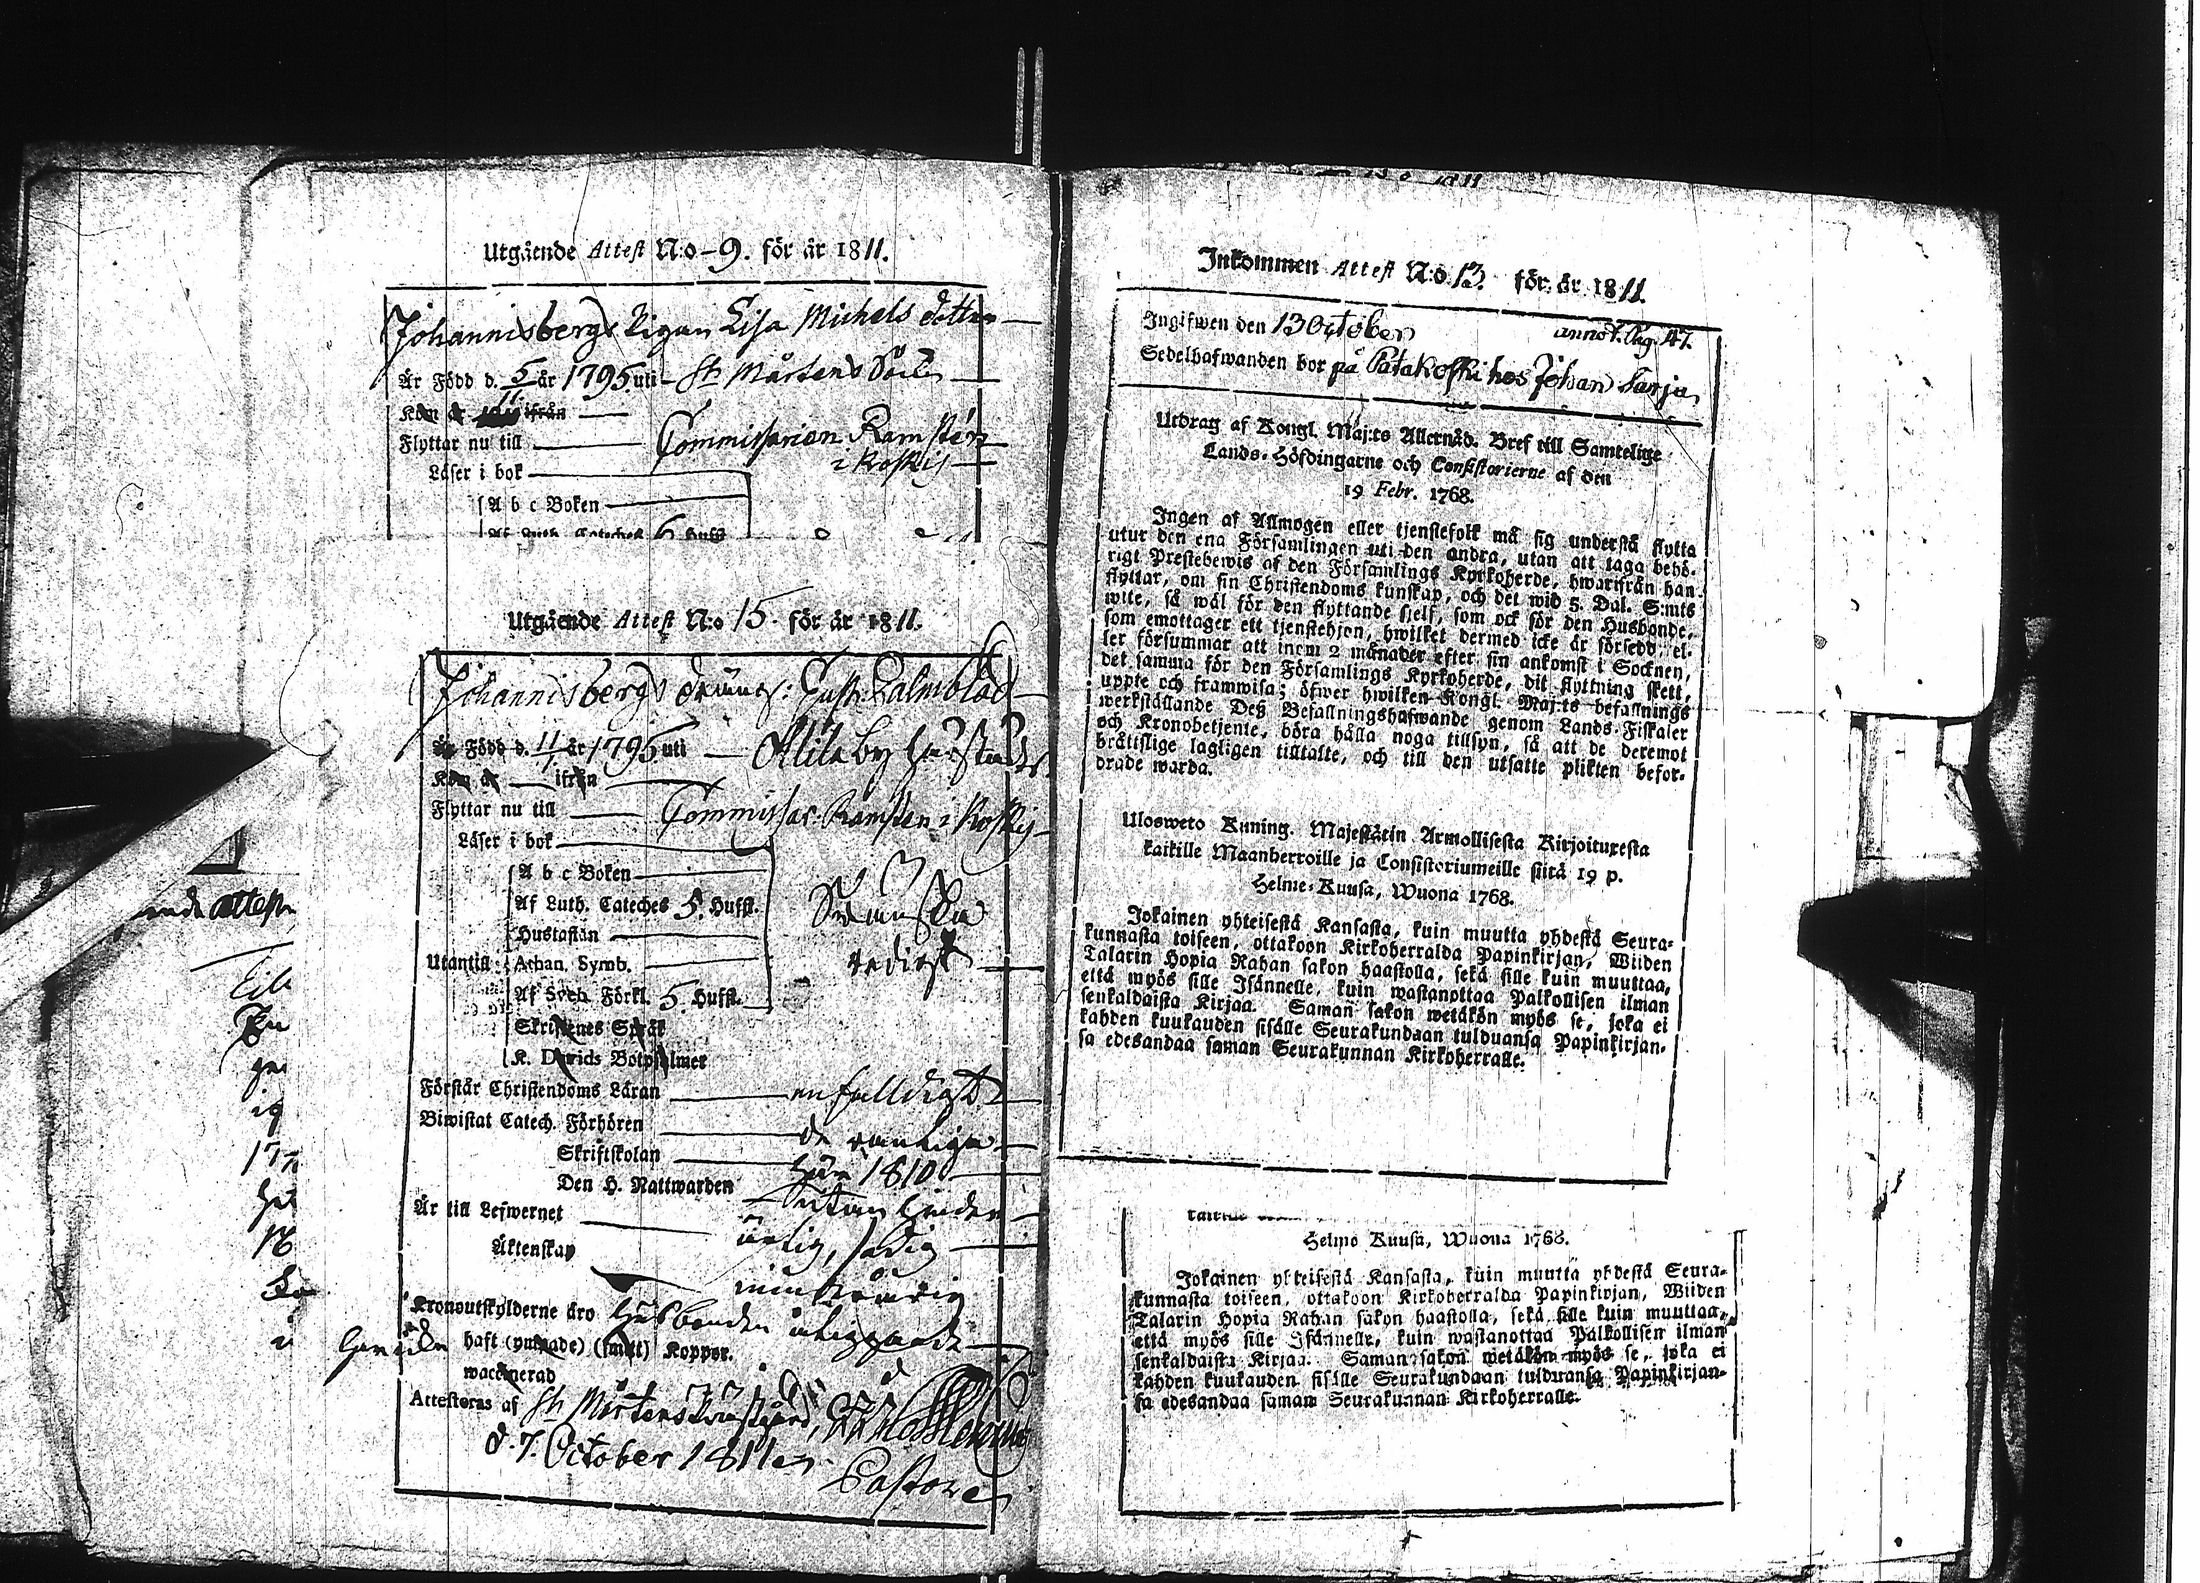 Utgående Attest N:o 9. för år 1811.
Johannisbergs Pigan Lisa Michels dotter
Är Född d. 5/11 år 1795 uti St Mårtens Sokn
Kom år ifrån
Flyttar nu till Commissarien Ramsten
i Koskis
Läser i bok
A b c Boken
Af Luth. Cateches 6 Huffst.
Utgående Attest N:o 15. för år 1811.
Johannisbergs dräng: Gust. Palmblad
Är Född d. 11/1 år 1795 uti by
Kom år ifrån
Flyttar nu till Commissar. Ramsten i Koskis
Läser i bok
A b c Boken
Af Luth. Cateches 5. Huffst.
Svenska
Hustaflan
Utantill Athan. Symb.
redigt
Af Sveb. Förkl. 5. Huffst.
Skriftenes Språk
K. Davids Botpsalmer
Förstår Christendoms Läran enfalldigt
Biwistat Catech. Förhören de vanliga
Skriftskolan här 1810
Den H. Nattwarden
Är till Lefwernet ärlig,
Äktenskap
Kronoutskylderne äro Husbonden
haft (ympade) (smitt) Koppor.
waccinerad
Attesteras af St Mårtens
d. 7. October 1811
Pastor
ande attest
Inkommen Attest N:o 13. för år 1811.
Ingifwen den 13 October annot. Pag. 47.
Sedelhafwanden bor på Patakoski hos Johan Tarja
Utdrag af Kongl. Maj:ts Allernåd. Bref till Samtelige
Lands-Höfdingarne och Consistorierne af den
19 Febr. 1768.
Ingen af Allmogen eller tjenstefolk må sig understå flytta
utur den ena Församlingen uti den andra, utan att taga behö-
rigt Prestebewis af den Församlings Kyrkoherde, hwarifrån han
flyttar, om sin Christendoms kunskap, och det wid 5. Dal. S:mts
wite, så wäl för den flyttande sjelf, som ock för den Husbonde,
som emottager ett tjenstehjon, hwilket dermed icke är försedd; el-
ler försummar att inom 2 månader efter sin ankomst i Socknen,
det samma för den Församlings Kyrkoherde, dit flyttning skett,
uppte och framwisa; öfwer hwilken Kongl. Maj:ts befallnings
werkställande Deß Befallningshafwande genom Lands-Fiskaler
och Kronobetjente, böra hålla noga tillsyn, så att de deremot
brättslige lagligen tilltalte, och till den utsatte plikten befor-
drade warda.
Ulosweto Kuning. Majestätin Armollisesta Kirjoituxesta
kaikille Maanherroille ja Consistoriumeille siitä 19 p.
Helme-Kuusa, Wuona 1768.
Jokainen yhteisestä Kansasta, kuin muutta yhdestä Seura-
kunnasta toiseen, ottakoon Kirkoherralda Papinkirjan, Wiiden
Talarin Hopia Rahan sakon haastolla, sekä sille kuin muuttaa,
että myös sille Isännelle, kuin wastanottaa Palkollisen ilman
senkaldaista Kirjaa. Saman sakon wetäkön myös se, joka ei
kahden kuukauden sisälle Seurakundaan tulduansa Papinkirjan-
sa edesandaa saman Seurakunnan Kirkoherralle.
Helme Kuusa, Wuona 1768.
Jokainen yhteisestä Kansasta, kuin muutta yhdestä Seura-
kunnasta toiseen, ottakoon Kirkoherralda Papinkirjan, Wiiden
Talarin Hopia Rahan sakon haastolla, sekä sille kuin muuttaa,
että myös sille Isännelle, kuin wastanottaa Palkollisen ilman
senkaldaista Kirjaa. Saman sakon wetäkön myös se, joka ei
kahden kuukauden sisälle Seurakundaan tulduansa Papinkirjan-
sa edesandaa saman Seurakunnan Kirkoherralle.